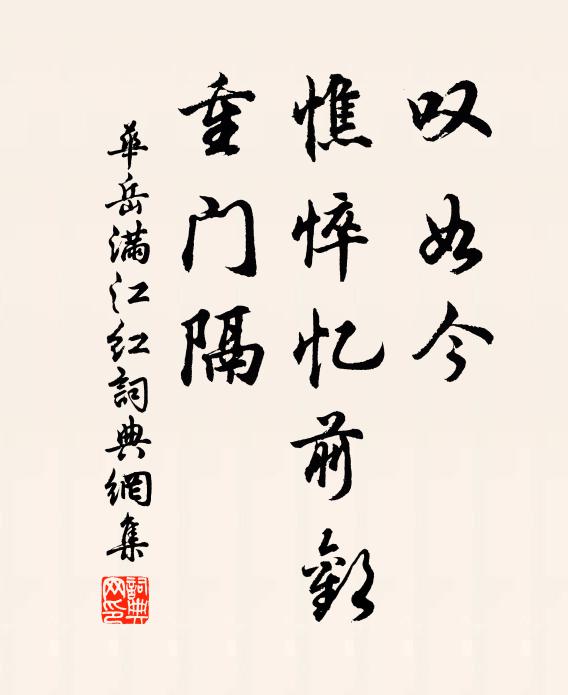 叹如今
憔悴忆前欢
重门隔
華岳滿江红詞典網集
詞典网印